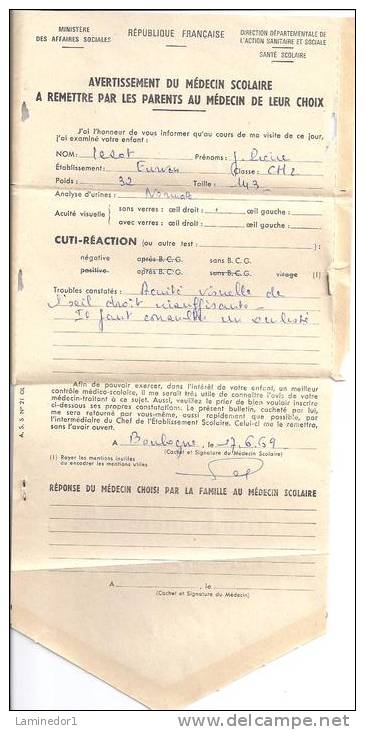 MINISTÈRE
DES AFFAIRES SOCIALES
RÉPUBLIQUE FRANÇAISE
DIRECTION DÉPARTEMENTALE DE
L'ACTION SANITAIRE ET SOCIALE
SANTÉ SCOLAIRE
AVERTISSEMENT DU MÉDECIN SCOLAIRE
A REMETTRE PAR LES PARENTS AU MÉDECIN DE LEUR CHOIX
J'ai l'honneur de vous informer qu'au cours de ma visite de ce jour,
j'ai examiné votre enfant :
NOM: Prénoms: J. Pierre
Établissement: Classe: CM2
Poids : 32 Taille : 143
Analyse d'urines : Normale
Acuité visuelle { sans verres : œil droit : œil gauche :
avec verres : œil droit : œil gauche :
CUTI-RÉACTION (ou autre test : ) :
négative après B.C.G. sans B.C.G.
positive après B.C.G. sans B.C.G. virage (1)
Troubles constatés : Acuité visuelle de
l'œil droit insuffisante -
Il faut consulter un oculiste
Afin de pouvoir exercer, dans l'intérêt de votre enfant, un meilleur
contrôle médico-scolaire, il me serait très utile de connaître l'avis de votre
médecin-traitant à ce sujet. Aussi, veuillez le prier de bien vouloir inscrire
ci-dessous ses propres constatations. Le présent bulletin, cacheté par lui,
me sera retourné par vous-même, aussi rapidement que possible, par
l'intermédiaire du Chef de l'Établissement Scolaire. Celui-ci me le remettra,
sans l'avoir ouvert.
A Boulogne, le 17.6.69
(Cachet et Signature du Médecin Scolaire)
(1) Rayer les mentions inutiles
ou encadrer les mentions utiles
A. S. S. N° 21
RÉPONSE DU MÉDECIN CHOISI PAR LA FAMILLE AU MÉDECIN SCOLAIRE
A , le
(Cachet et Signature du Médecin)
Laminedor1
©delcampe.net